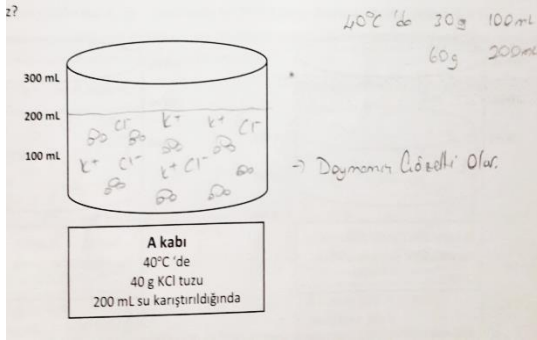 z?
40°C 'de 30g 100mL
60g 200mL
300 mL
200 mL
100 mL
Cl⁻ K+ K+ Cl⁻
K+ Cl⁻ K+ Cl⁻
→ Doymamış Çözelti Olur.
A kabı
40°C 'de
40 g KCl tuzu
200 mL su karıştırıldığında